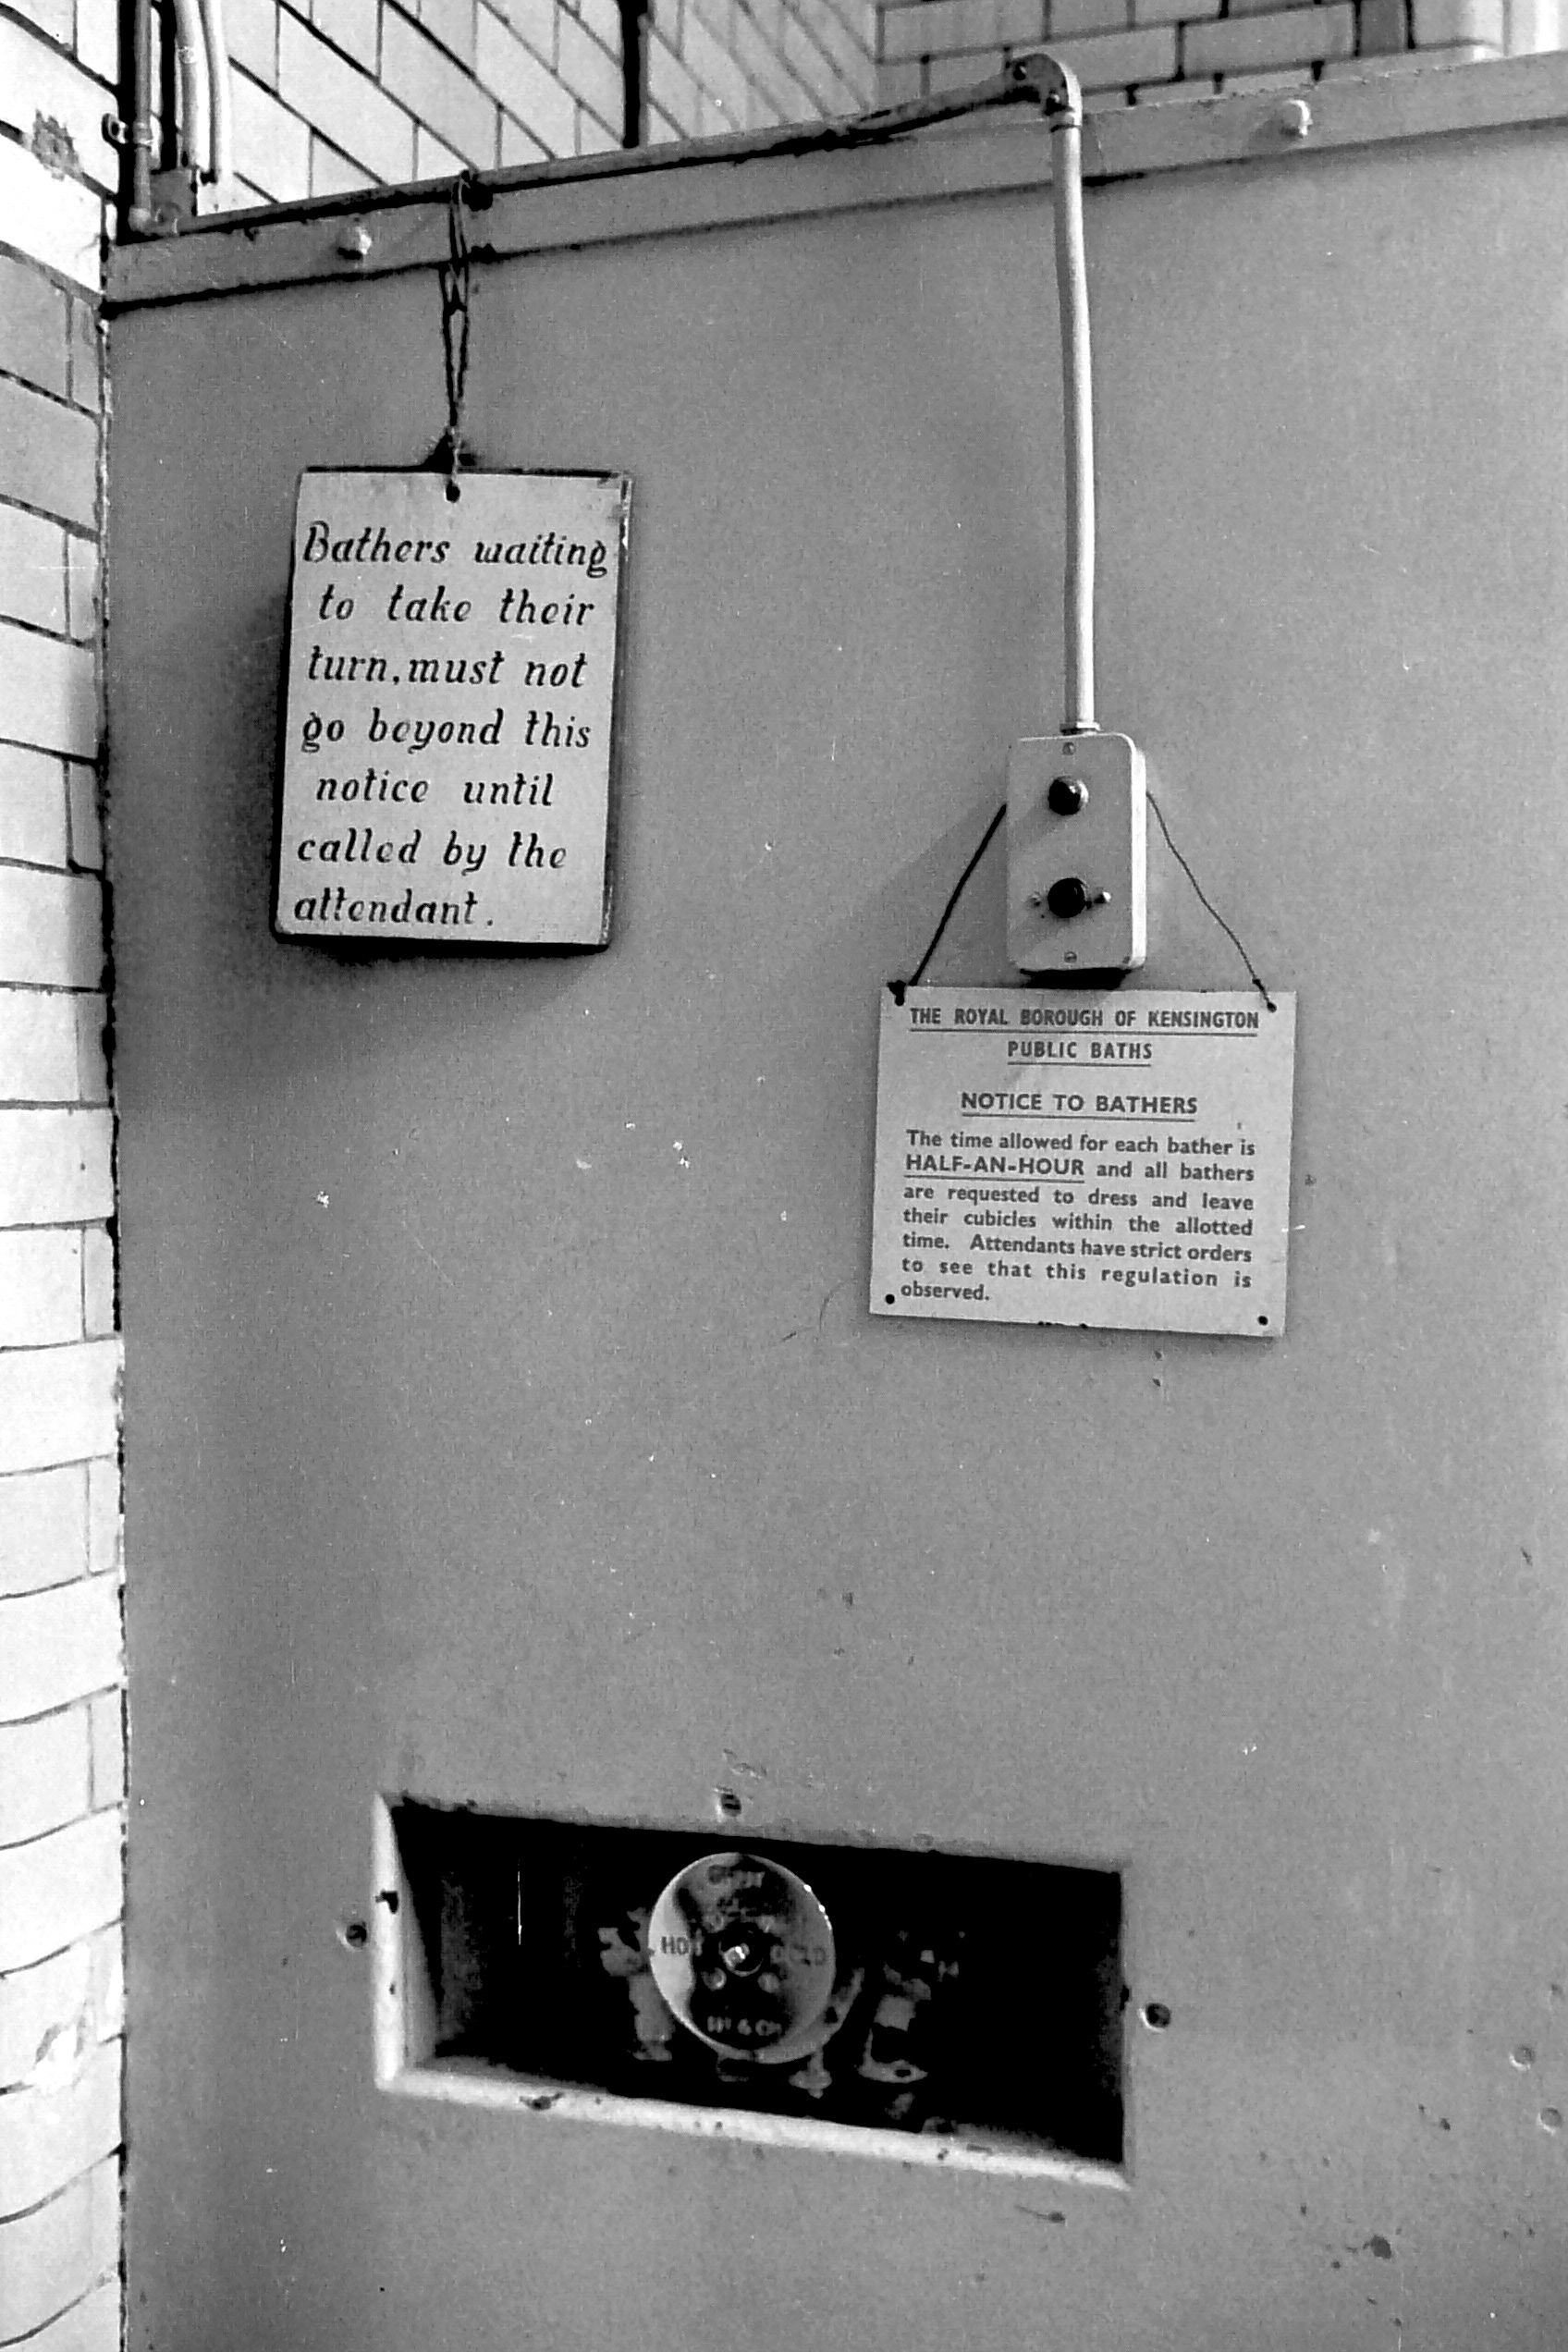 Bathers waiting
to take their
turn, must not
go beyond this
notice until
called by the
attendant.
THE ROYAL BOROUGH OF KENSINGTON
PUBLIC BATHS
NOTICE TO BATHERS
The time allowed for each bather is
HALF-AN-HOUR and all bathers
are requested to dress and leave
their cubicles within the allotted
time. Attendants have strict orders
to see that this regulation is
observed.
HOT COLD